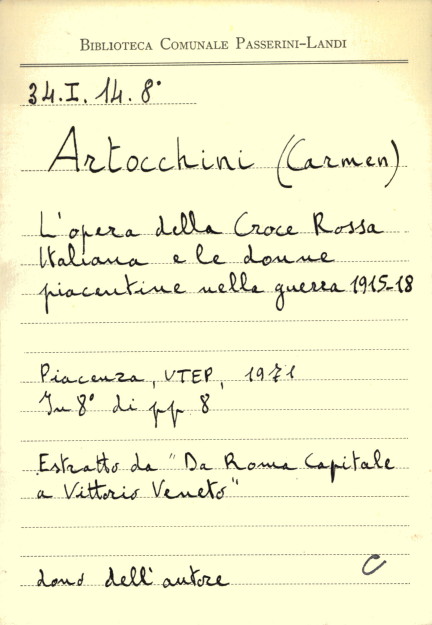 BIBLIOTECA COMUNALE PASSERINI-LANDI
34.I.14.8°
Artocchini (Carmen)
L'opera della Croce Rossa
Italiana e le donne
piacentine nella guerra 1915-18
Piacenza, UTEP, 1971
In 8° di pp 8
Estratto da "Da Roma Capitale
a Vittorio Veneto"
dono dell'autore
C